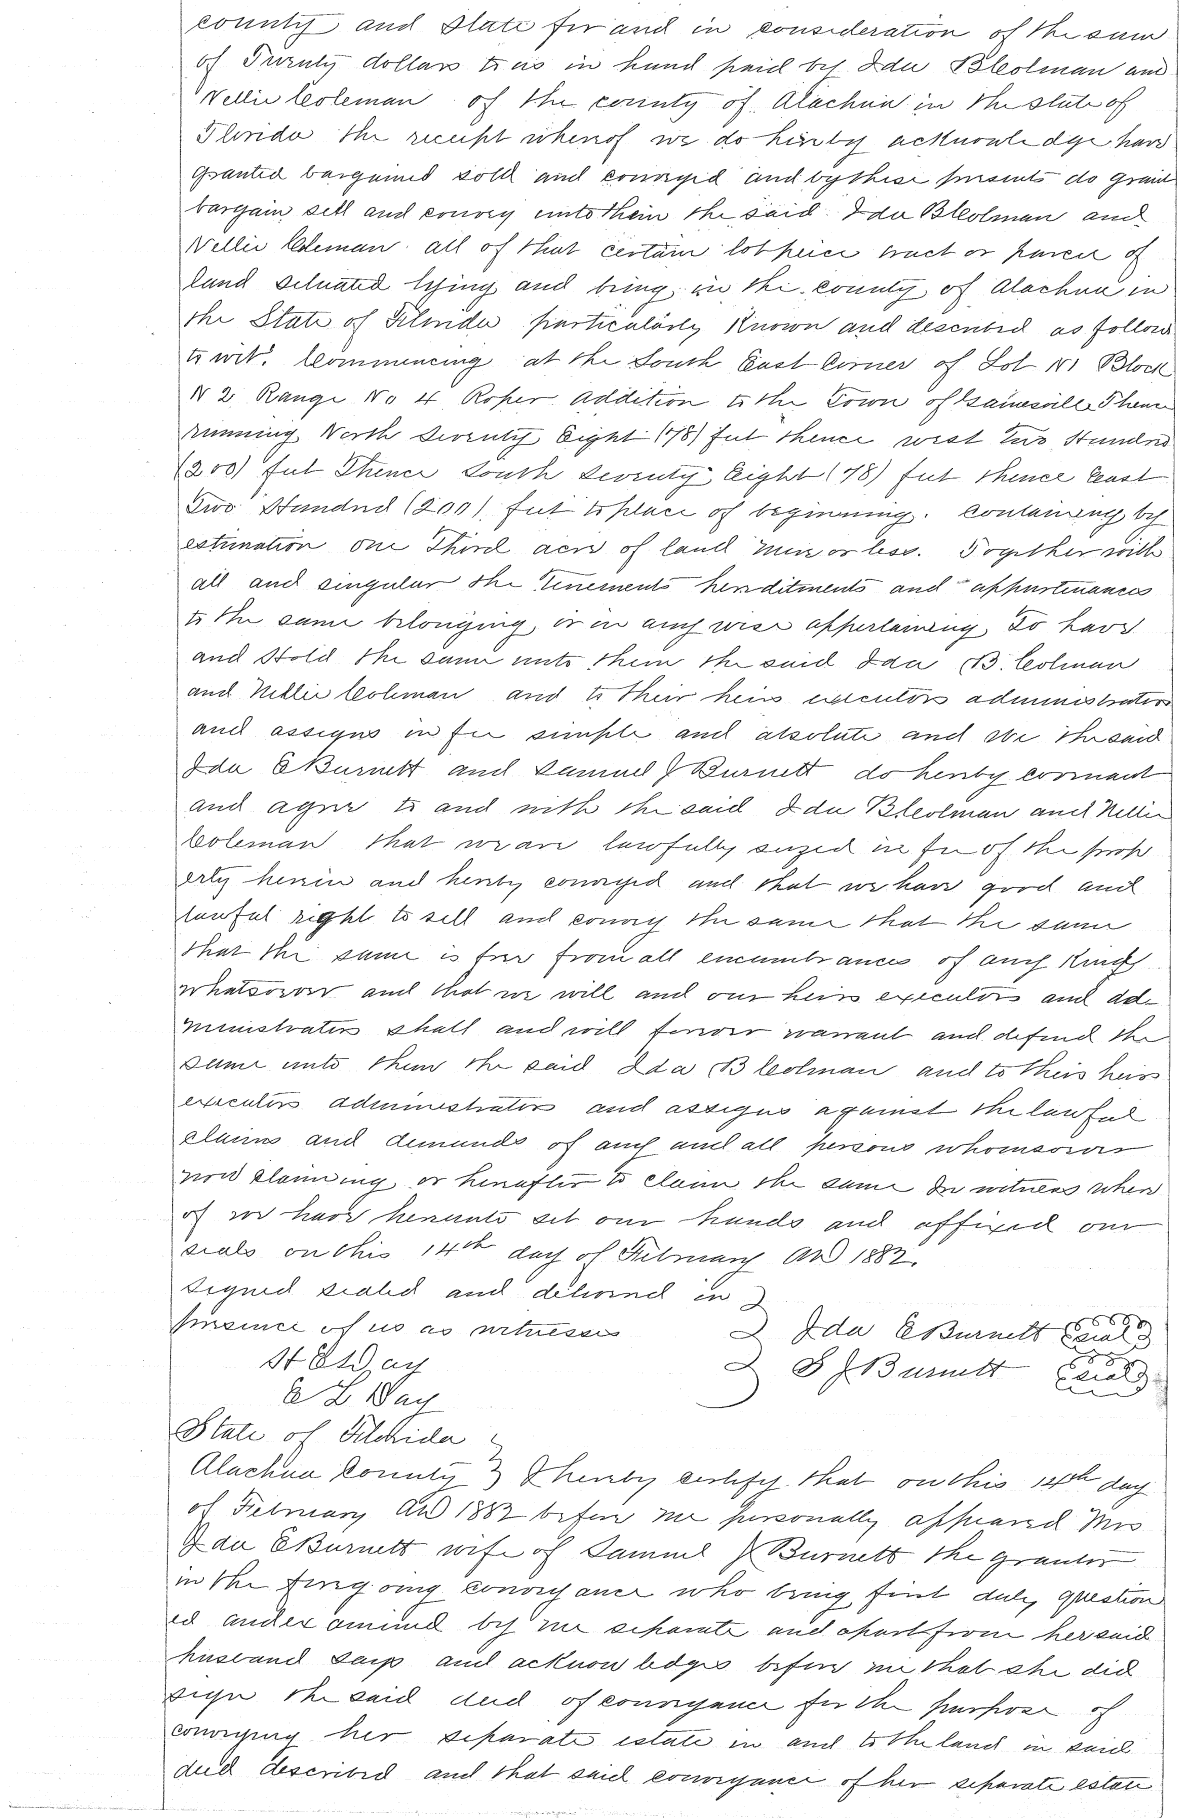 county and State for and in consideration of the sum
of Twenty dollars to us in hand paid by Ida B Colman and
Nellie Coleman of the county of Alachua in the state of
Florida the receipt whereof we do hereby acknowledge have
granted bargained sold and conveyed and by these presents do grant
bargain sell and convey unto them the said Ida B Colman and
Nellie Coleman all of that certain lot peice tract or parcel of
land situated lying and being in the county of Alachua in
the State of Florida particularly Known and described as follows
to wit. Commencing at the South East Corner of Lot N1 Block
N 2 Range No 4 Roper Addition to the Town of Gainesville Thence
running North Seventy Eight (78) feet thence west Two Hundred
(200) feet Thence South Seventy Eight (78) feet thence East
Two Hundred (200) feet to place of beginning. Containing by
estimation one Third acre of land more or less. Together with
all and singular the Tenements herditments and appurtenances
to the same belonging or in any wise appertaining To have
and Hold the same unto them the said Ida B. Colman
and Nellie Coleman and to their heirs executors administrators
and assigns in fee simple and absolute and We the said
Ida E Burnett and Samuel J Burnett do hereby covenant
and agree to and with the said Ida B Colman and Nellie
Coleman that we are lawfully seized in fee of the prop
erty herein and hereby conveyed and that we have good and
lawful right to sell and convey the same that the same
that the same is free from all encumbrances of any Kind
whatsoever and that we will and our heirs executors and ad-
ministrators shall and will forever warrant and defend the
same unto them the said Ida B Colman and to theirs heirs
executors administrators and assigns against the lawful
claims and demands of any and all persons whomsoever
now claiming or hereafter to claim the same In witness where
of we have hereunto set our hands and affixed our
seals on this 14th day of February AD 1882.
Signed sealed and delivered in
presence of us as witnesses Ida E Burnett (seal)
H E Day S J Burnett (seal)
E L Day
State of Florida
Alachua County } I hereby certify that on this 14th day
of February AD 1882 before me personally appeared Mrs
Ida E Burnett wife of Samuel J Burnett the grantor
in the foregoing conveyance who being first duly question
ed and examined by me separate and apart from her said
husband says and acknowledges before me that she did
sign the said deed of conveyance for the purpose of
conveying her separate estate in and to the land in said
deed described and that said conveyance of her separate estate